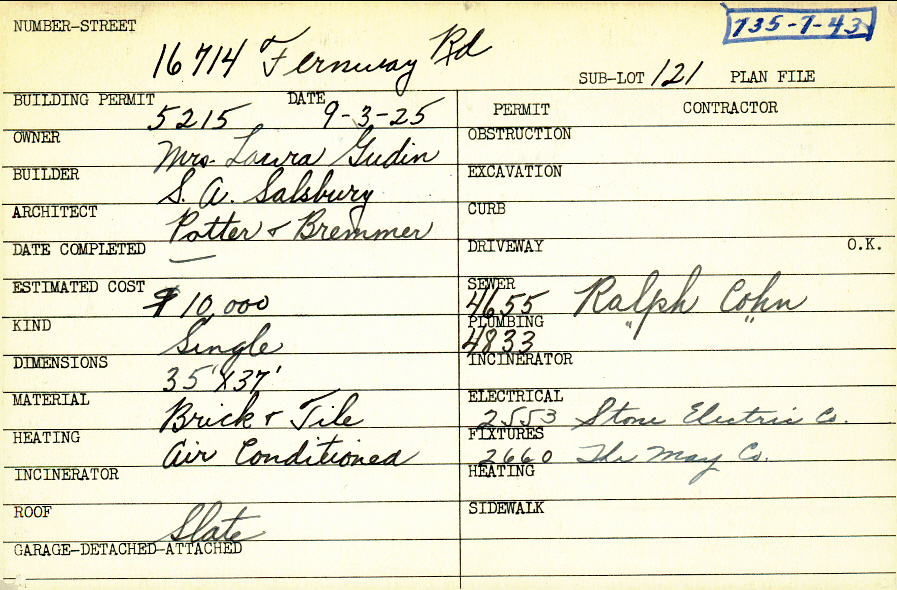 NUMBER-STREET 735-7-43
16714 Fernway Rd
SUB-LOT 121 PLAN FILE
BUILDING PERMIT 5215 DATE 9-3-25
PERMIT CONTRACTOR
OWNER Mrs. Laura Gudin
OBSTRUCTION
BUILDER S. A. Salsbury
EXCAVATION
ARCHITECT Potter & Bremmer
CURB
DATE COMPLETED —
DRIVEWAY O.K.
ESTIMATED COST $10,000
SEWER 4655 Ralph Cohn
KIND Single
PLUMBING 4833 " "
DIMENSIONS 35'X37'
INCINERATOR
MATERIAL Brick & Tile
ELECTRICAL 2553 Stone Electric Co.
HEATING Air Conditioned
FIXTURES 2660 The May Co.
INCINERATOR
HEATING
ROOF Slate
SIDEWALK
GARAGE-DETACHED-ATTACHED